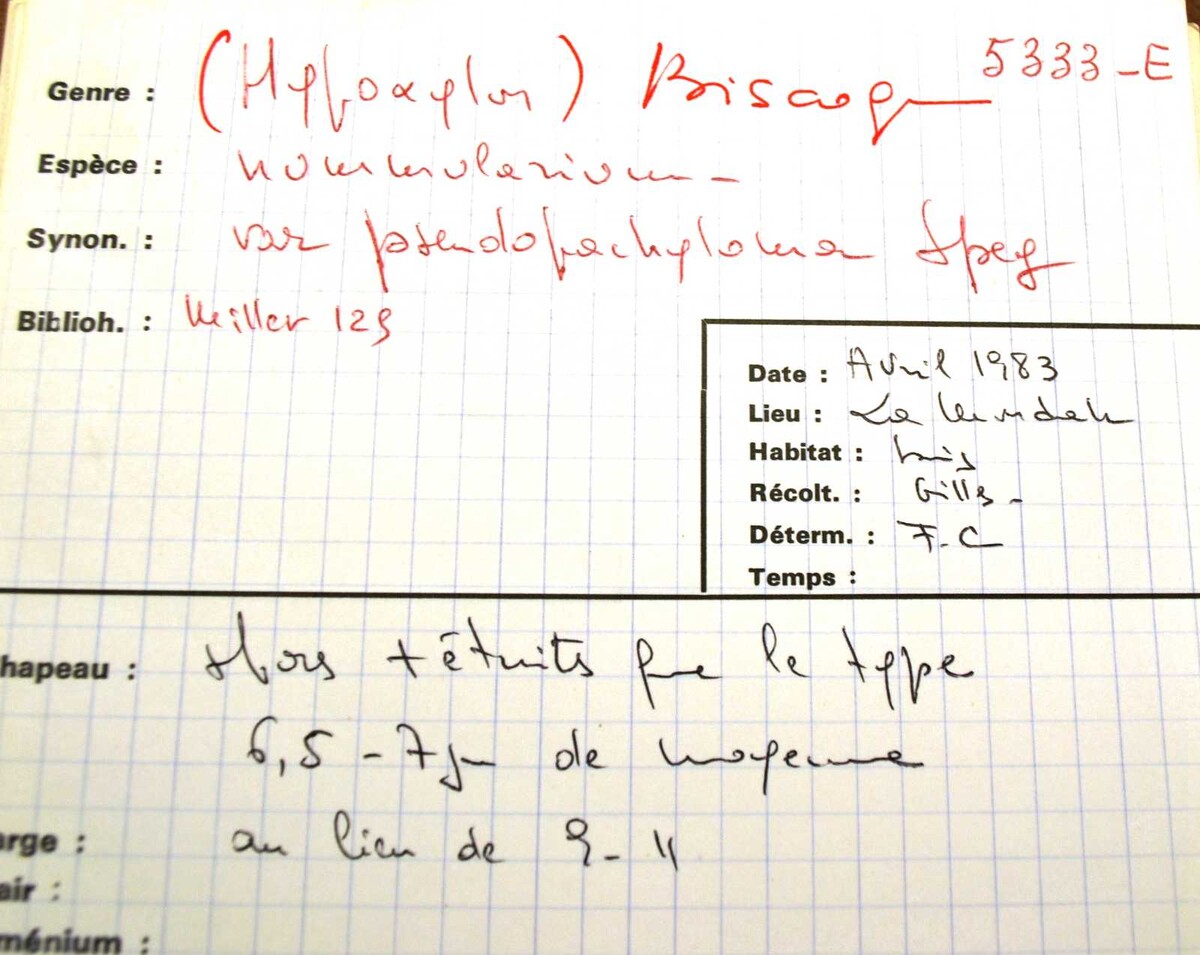 Genre : (Hypoxylon) Biscog 5333-E
Espèce : nummularium
Synon. : var pseudopachyloma Speg
Biblioh. : Miller 129
Date : Avril 1983
Lieu : La
Habitat : bois
Récolt. : Gilles
Déterm. : F.C
Temps :
hapeau : + étroits que le type
6,5 - 7 µ de moyenne
arge : au lieu de 9 - 11
air :
ménium :